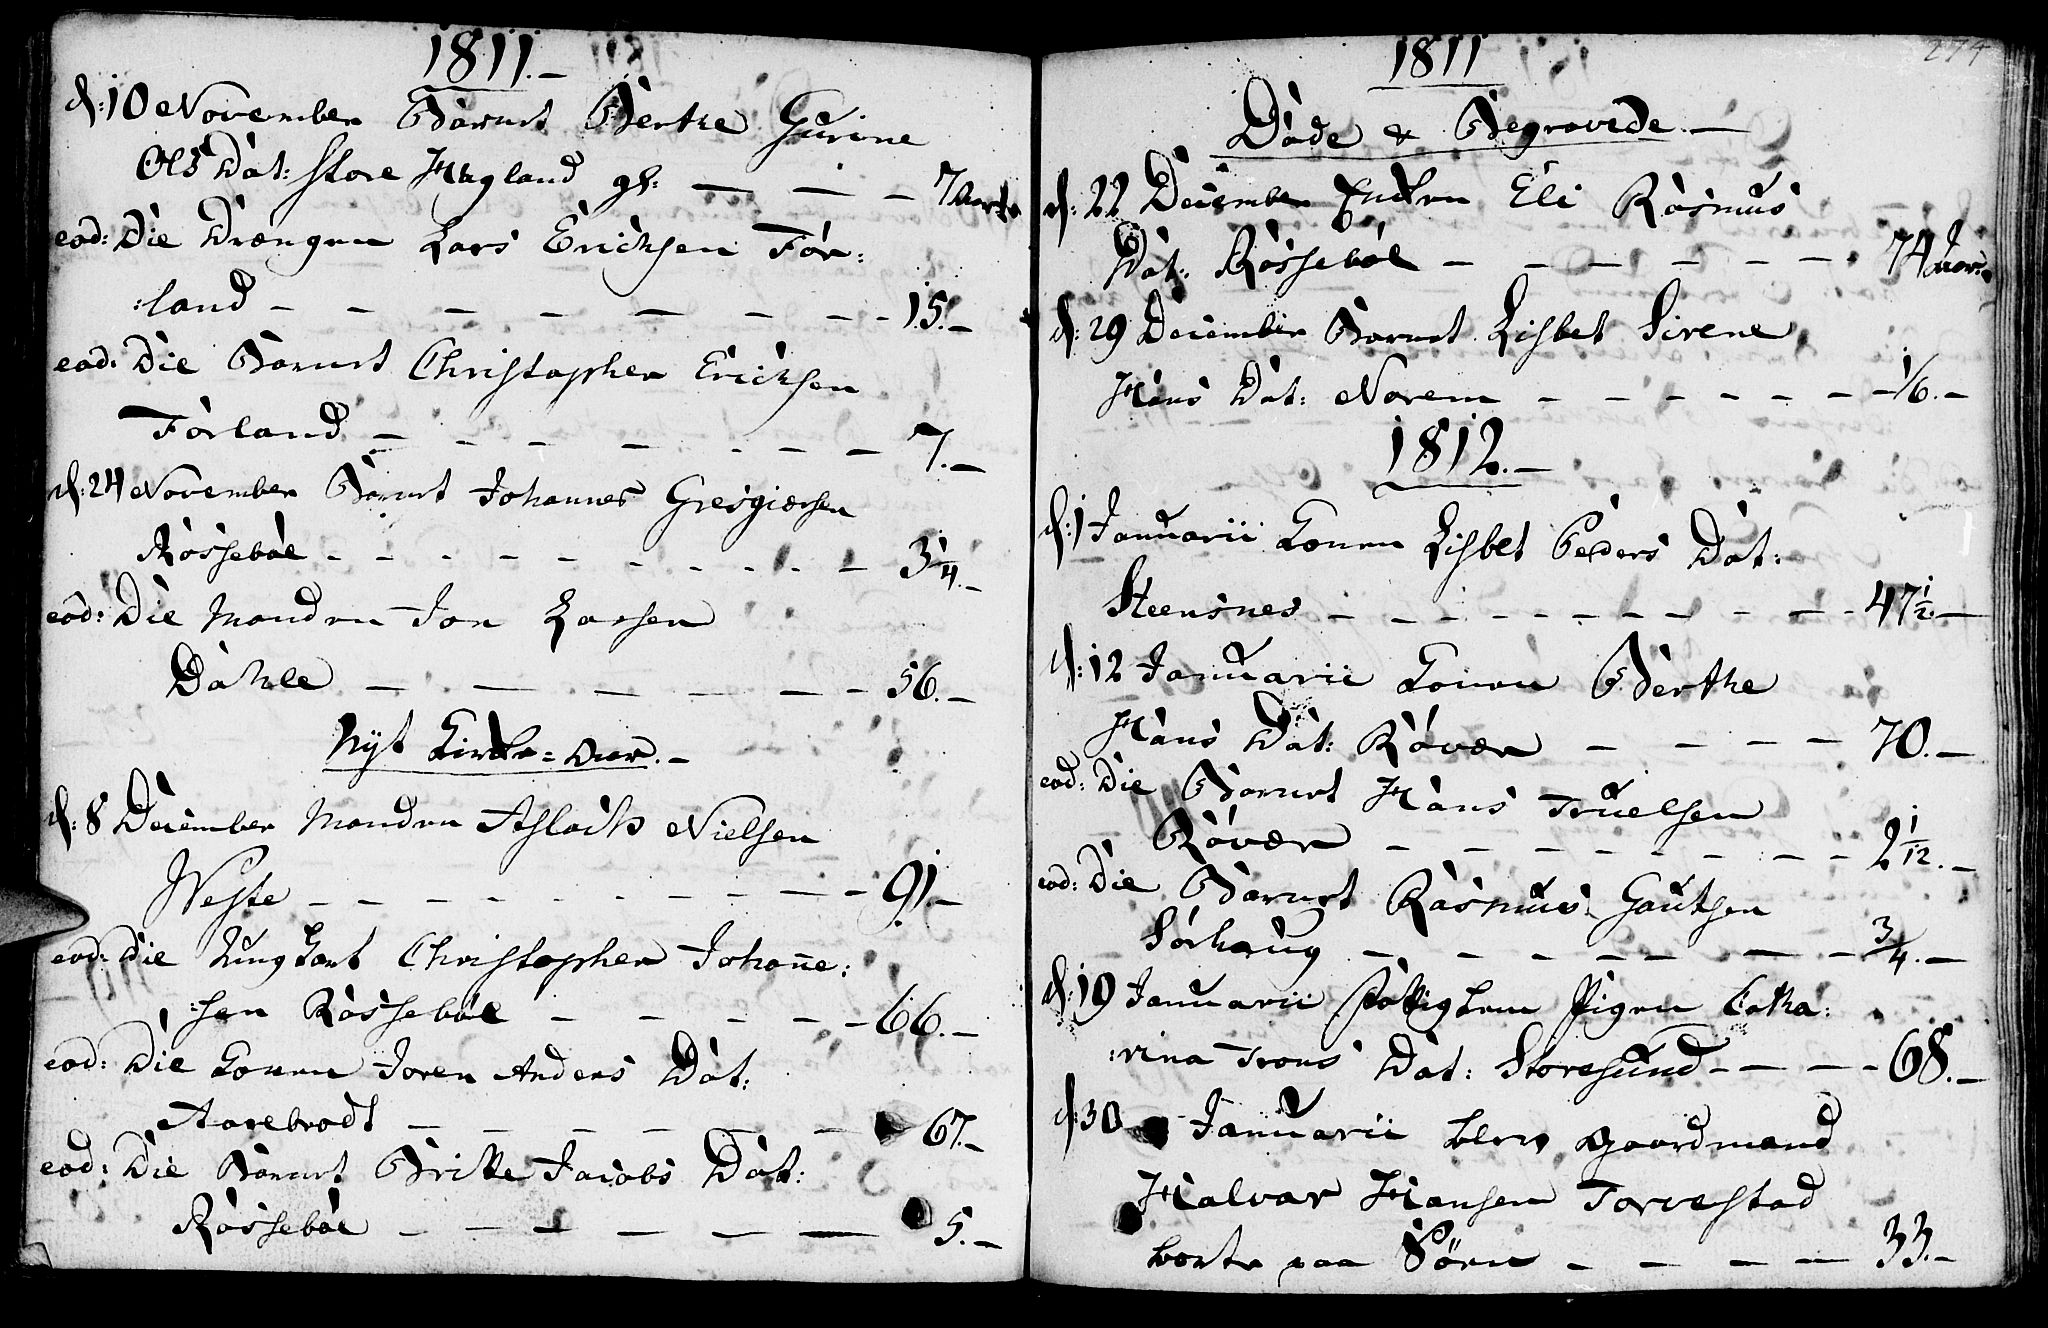 1811.-
d: 10 November Barnet Berthe Gurine
Ols Dat: Store Hagland gl: — — - 7 Aar
eod: Die Drængen Lars Erichsen Før:
:land - - - - - - - 15.-
eod: Die Barnet Christopher Erichsen
Førland - - - - - - - 7.-
d: 24 November Barnet Johannes Gresgiersen
Røssebøe - - - - - - - - - 3 1/4.-
eod: Die Manden Jon Larsen
Dahle - - - - - - 56.-
Nyt Kirke=Aar.-
d: 8 December Manden Aslach Nielsen
Weste - - - - - - - - - 91.-
eod: Die Ungkarl Christopher Johañe:
:sen Røssebøe - - - - - 66.-
eod: Die Konen Joren Anders Dat:
Aarebrodt - - - - - - 67.-
eod: Die Barnet Britte Jacobs Dat:
Røssebøe - - - - - — 5.-
1811
274
Døde & Begravede.-
d: 22 December Enken Eli Rasmus
Dat: Røssebøe - - - - - - - 74 Aar
d: 29 December Barnet Lisbet Sirene
Hans Dat: Norem - - - - - - - 1/6.-
1812.-
d: 1 Januarii Konen Lisbet Peders Dat:
Steensnes - - - - - - - - - - 47 1/2.-
d: 12 Januarii Konen Berthe
Hans Dat: Røvær - - - - 70.-
eod: Die Barnet Hans Truelsen
Røvær - - - - - - - - 2 1/12.-
eod: Die Barnet Rasmus Gautsen
Sørhaug - - - - - - - - 3/4.-
d: 19 Januarii Pigen Catha:
:rina Trons Dat: Storesund - - - - 68.-
d: 30 Januarii blev gaardmand
Halvar Hansen Torvestad
borte paa Søen - - - - 33.-